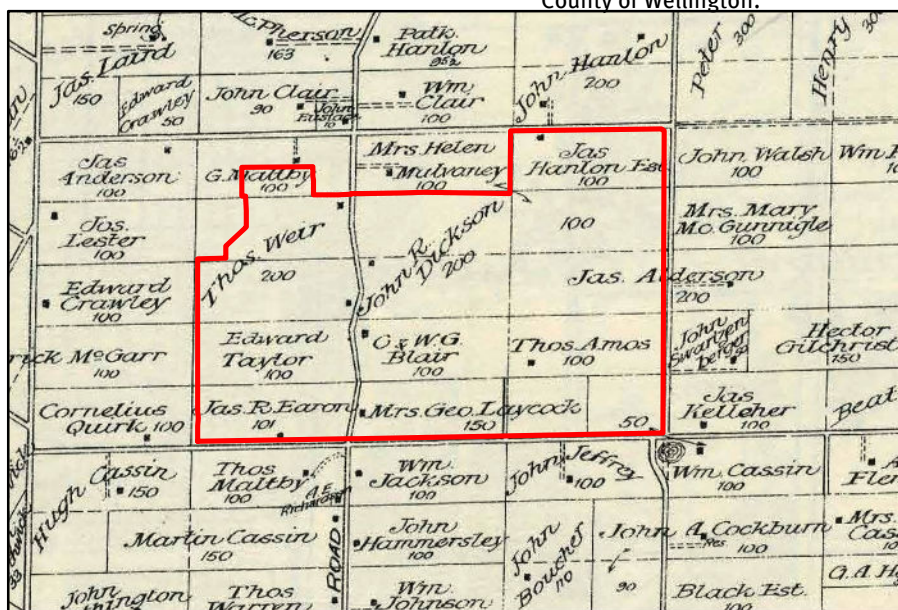 County of Wellington.
Spring
Jas. Laird
150
Edward
Crawley
50
McPherson
163
John Clair
90
John
Eustace
10
Patk.
Hanlon
95½
Wm
Clair
100
John Hanlon
200
Peter
300
Henry
300
Jas
Anderson
100
G. Maltby
100
Mrs. Helen
Mulvaney
100
Jas
Hanlon Est
100
John. Walsh
100
Jos.
Lester
100
Thos. Weir
200
John R.
Dickson
200
100
Mrs. Mary
Mc. Gunnigle
100
Edward
Crawley
100
Jas. Alderson
200
rick McGarr
100
Edward
Taylor
100
C & W.G.
Blair
100
Thos. Amos
100
John
Swartzen
berger
50
Hector
Gilchrist
150
Cornelius
Quirk 100
Jas. R. Earon
101
Mrs. Geo. Laycock
150
50
Jas
Kelleher
100
Beat
Hugh Cassin
150
Thos
Maltby
100
A. E.
Richardson
Wm.
Jackson
100
John Jeffrey
100
Wm. Cassin
100
Flem
Martin Cassin
150
ROAD
John
Hammersley
100
John
Bousher
110
John A. Cockburn
Res.
100
90
Mrs.
Cass
100
John
thington
Thos
Warren
Wm.
Johnson
Black Est.
100
G. A. H